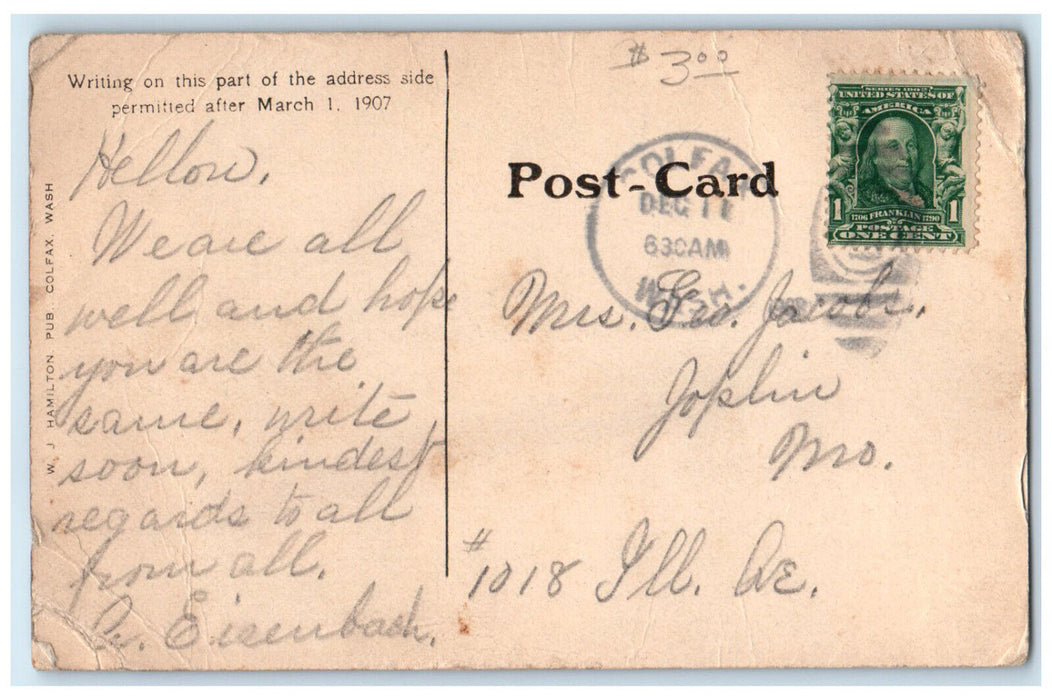 Writing on this part of the address side
permitted after March 1, 1907
Hellow,
We are all
well and hope
you are the
same, write
soon, kindest
regards to all
from all.
Eisenbach.
W. J HAMILTON PUB. COLFAX, WASH
$3.00
Post-Card
COLFAX
DEC 11
630AM
WASH.
SERIES 1902
UNITED STATES OF
AMERICA
1 1706 FRANKLIN 1790 1
POSTAGE
ONE CENT
Mrs. Geo. Jacobs,
Joplin
Mo.
#1018 Ill. Av.